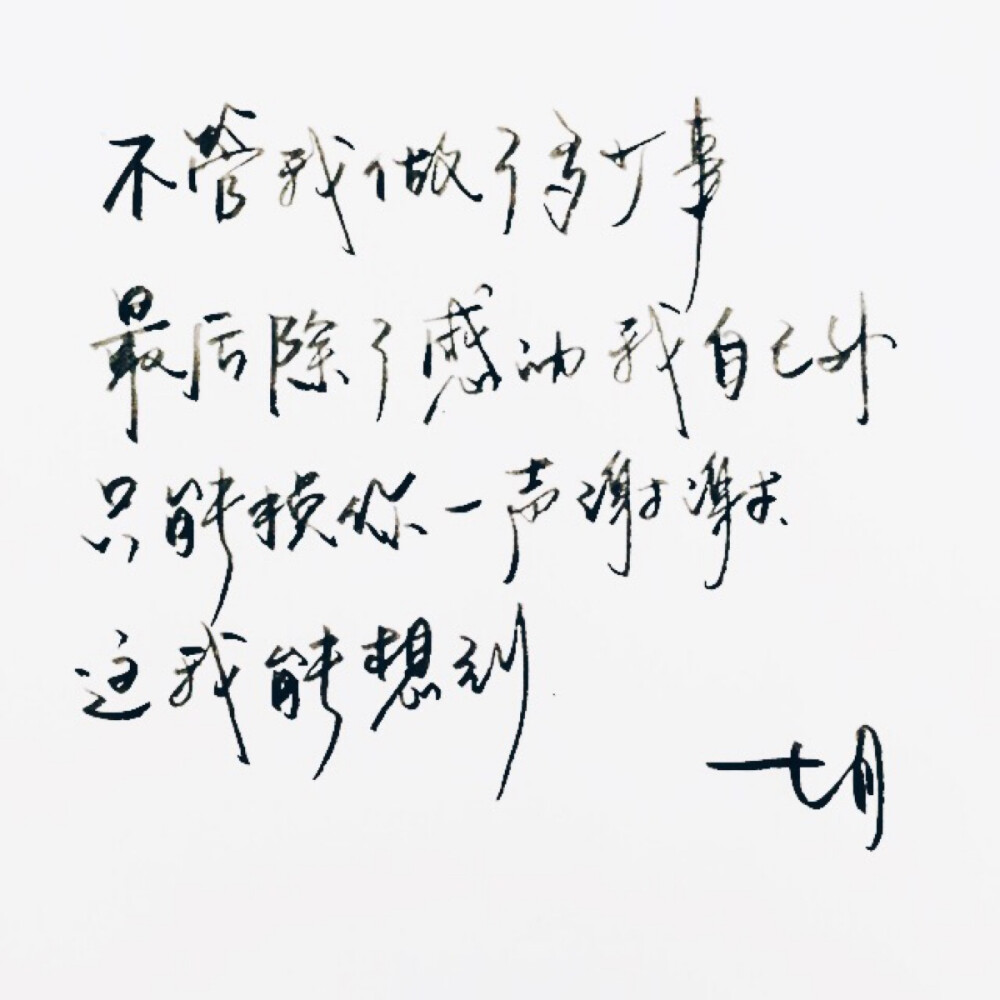 不管我做了多少事
最后除了感动我自己外
只能换你一声谢谢
这我能想到
一七月